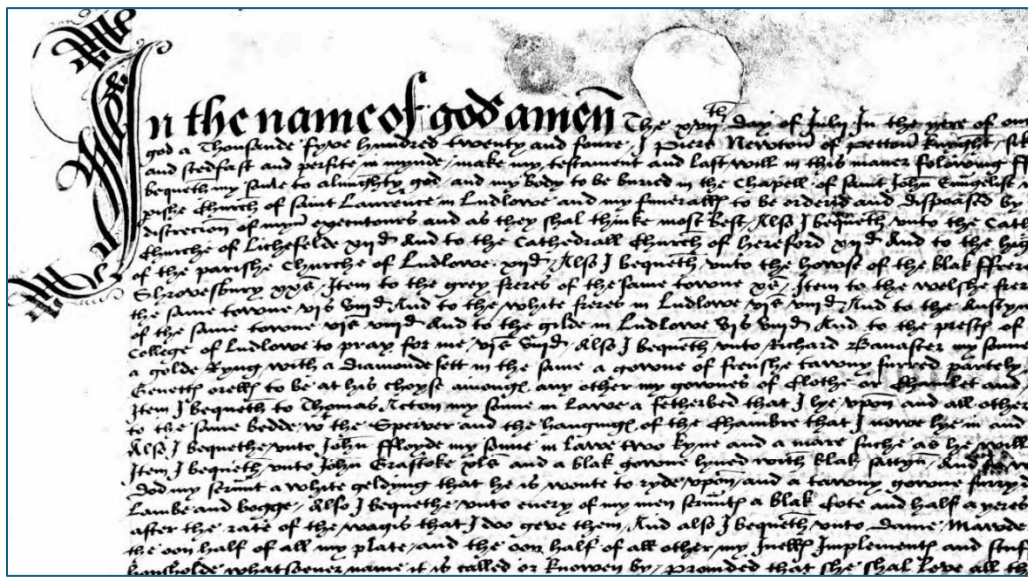 In the name of god amen The xviith day of Julij In the yere of our
god a Thousende fyve hundred twenty and foure, I Piers Newton of Petton knyght,
and stedfast and perfite in mynde, make my testament and last will in this maner folowing
bequeth my saule to almighty god and my body to be buried in the Chapell of saint John Eungelist
pishe Church of saint Laurence in Ludlowe and my funerall to be ordred and disposed by
discrecion of myn executoures and as they shal thinke most best, Also I bequeth vnto the Cath
Churche of Lichefelde xijd And to the Cathedrall Church of hereford xijd And to the high
of the parishe Churche of Ludlowe xijd, Also I bequeth vnto the howse of the blak ffreres
Shrovesbury xxs, Item to the grey freres of the same towne xs, Item to the welshe freres
the same towne vis viijd And to the whyte freres in Ludlowe vis viijd, And to the Austyn
of the same towne vis viijd And to the gilde in Ludlowe vis viijd And to the prestes of
College of Ludlowe to pray for me, vis viijd, Also I bequeth vnto Richard Banaster my sonne
a golde Ryng with a Diamonde sett in the same a gowne of frenshe tawny furred partely
to be at his choyse amonges any other my gownes of Clothe or Chamlet and
Item I bequeth to Thomas Acton my sonne in lawe a fetherbed that I lye vpon and all other
to the same bedde, w the Sperver and the hanginges of the Chambre that I nowe lye in and
Also I bequethe vnto John ffloyde my sonne in lawe two kyne and a mare suche as he will
Item I bequeth vnto John Grastoke xls and a blak gowne lyned with blak sattyn, And
Dod my seruunt a white geldyng that he is wonte to ryde vpon, and a tawny gowne furryd
Lambe and bogge, Also I bequethe vnto euery of my men seruuntes a blak Cote and half a yeres
after the rate of the wagis that I doo geve them, And also I bequeth vnto Dame Mawde
the oon half of all my plate, and the oon half of all other my Juelles Implementes and stuf
housholde whatsoever name it is called or knowen by, provided that she shal love all